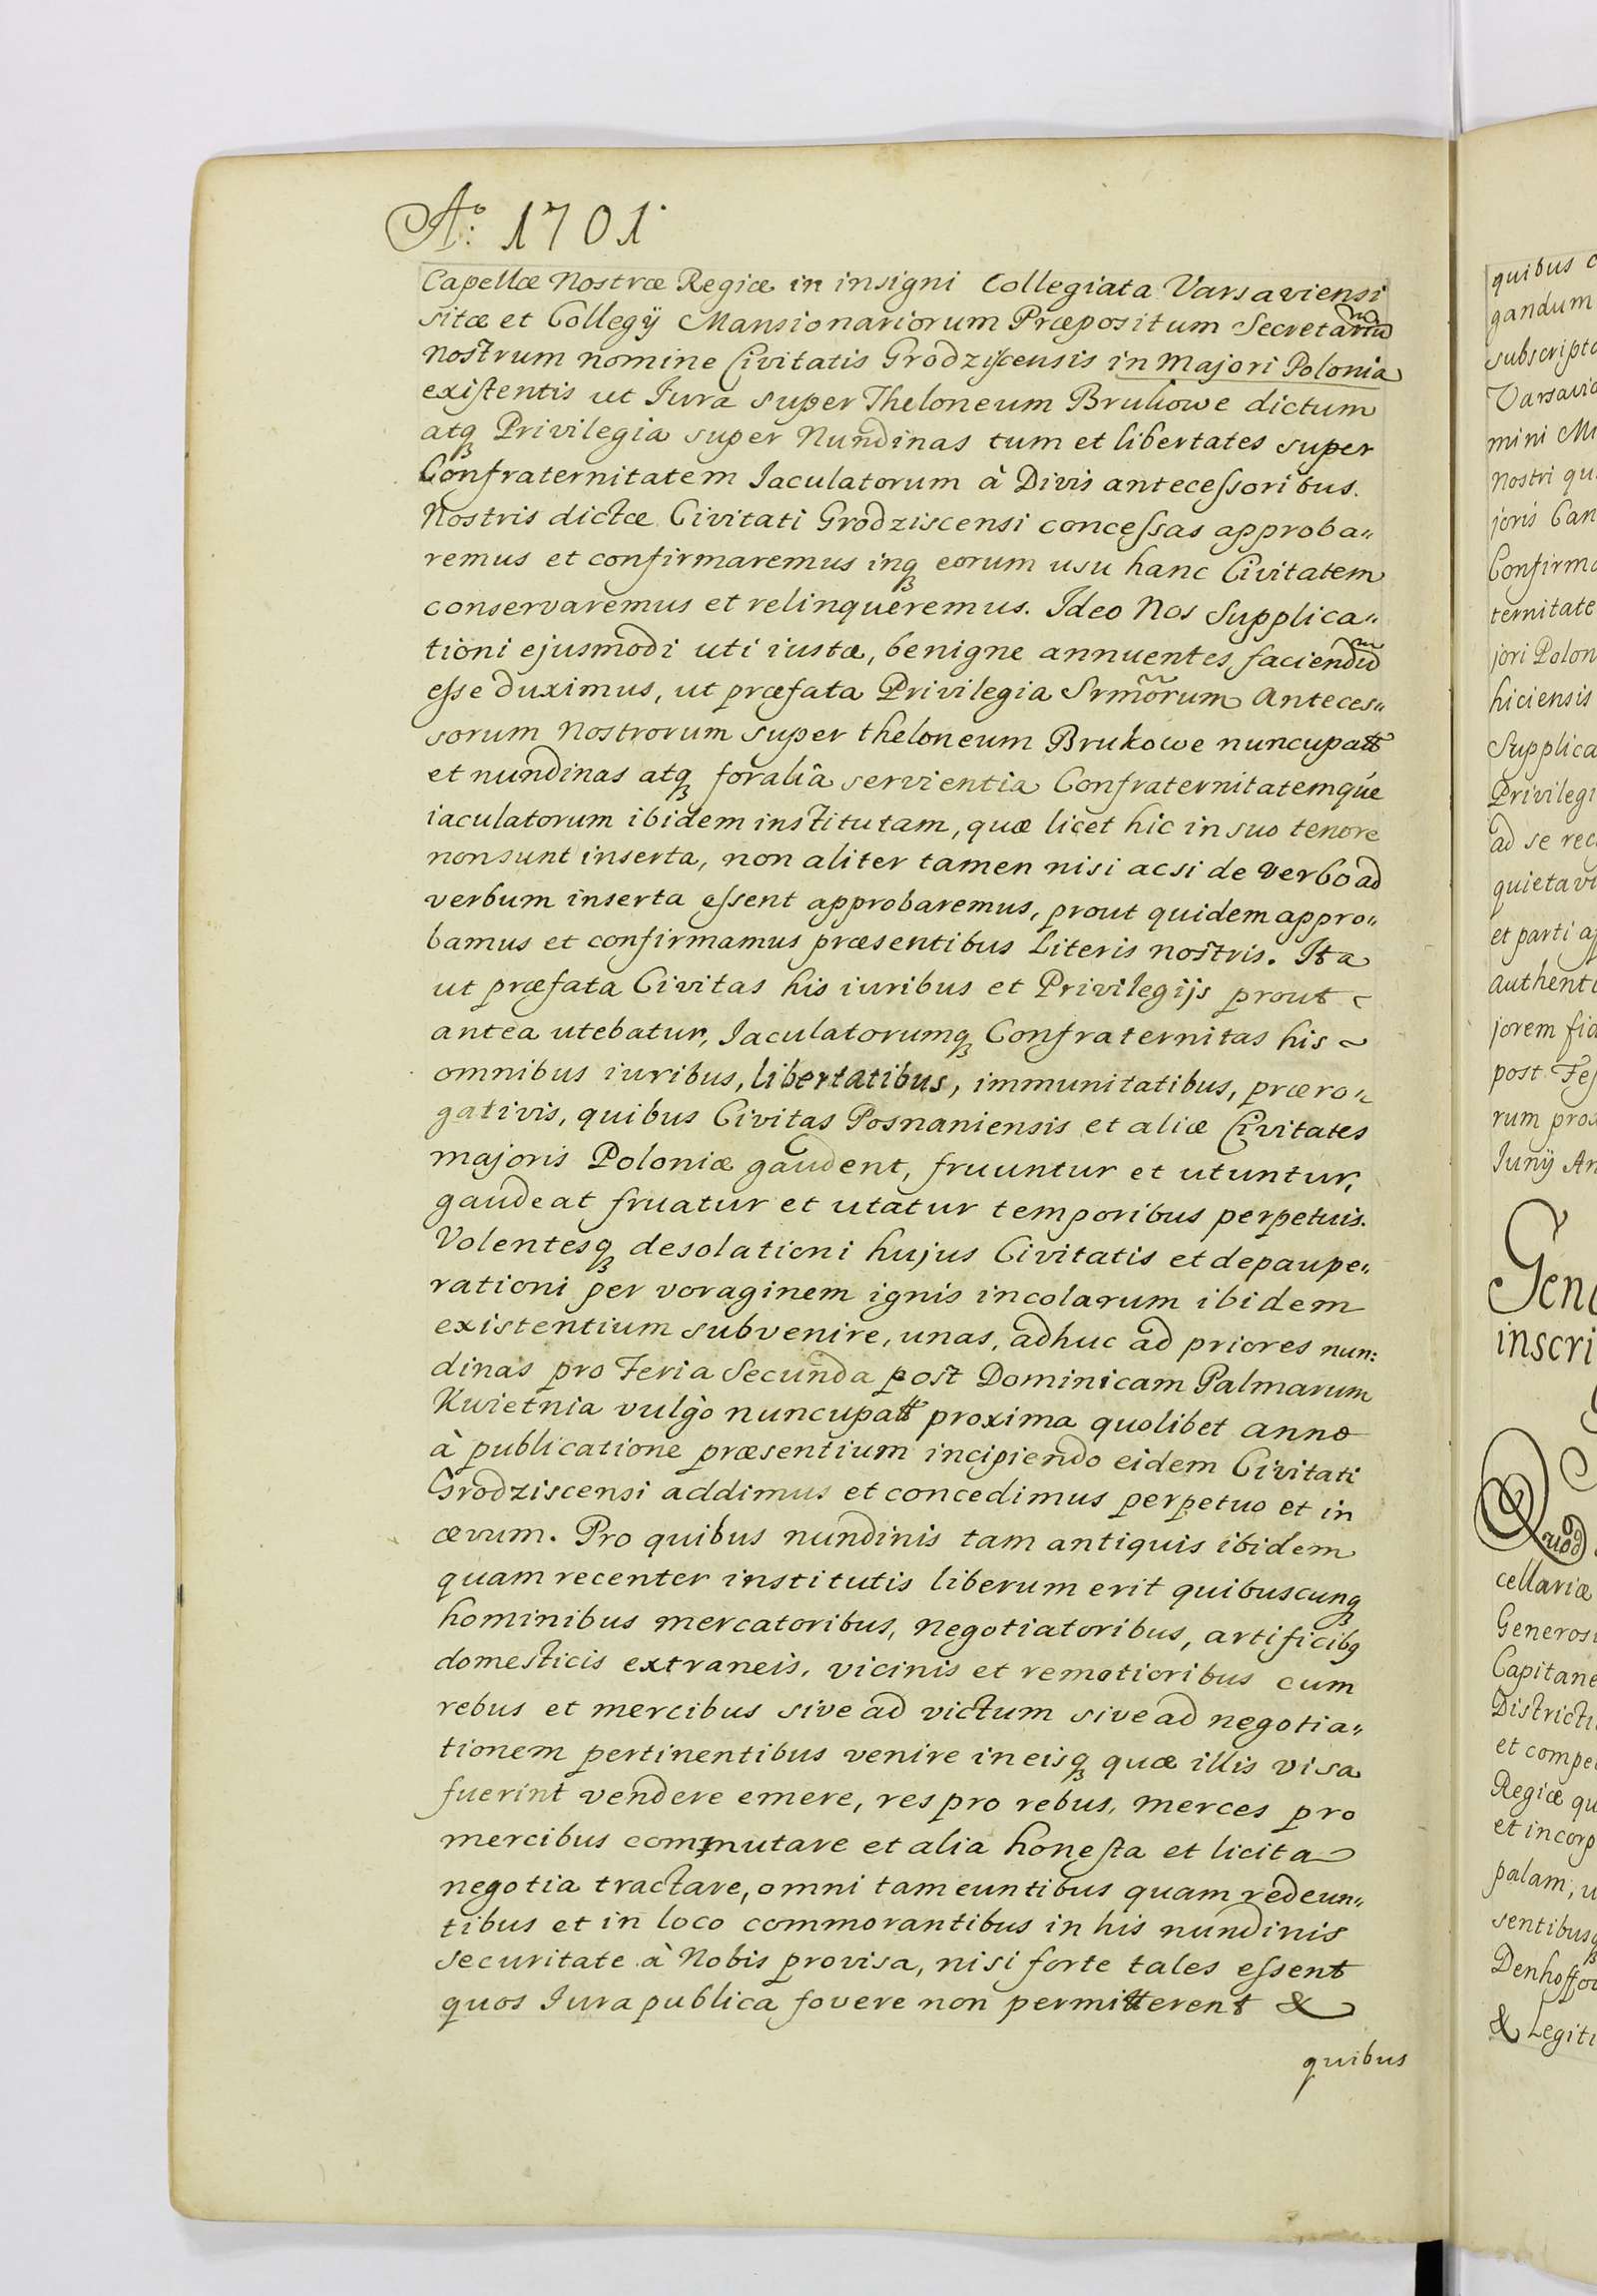 Aº: 1701
Capellæ Nostræ Regiæ in insigni Collegiata Varsaviensi
sitæ et Collegÿ Mansionariorum Præpositum Secretariũ
nostrum nomine Civitatis Grodziscensis in Majori Polonia
existentis ut Jura super Theloneum Brukowe dictum
atq̃ Privilegia super Nundinas tum et libertates super
Confraternitatem Jaculatorum à Divis antecessoribus.
Nostris dictæ Civitati Grodziscensi concessas approba„
remus et confirmaremus inq̃ eorum usu hanc Civitatem
conservaremus et relinqueremus. Ideo Nos Supplica„
tioni ejusmodi uti iustæ, benigne annuentes, faciendũ
esse duximus, ut præfata Privilegia Srm̃orum Anteces„
sorum Nostrorum super theloneum Brukowe nuncupatt
et nundinas atq̃ foralia servientia Confraternitatemque
iaculatorum ibidem institutam, quæ licet hic in suo tenore
non sunt inserta, non aliter tamen nisi acsi de verbo ad
verbum inserta essent approbaremus, prout quidem appro„
bamus et confirmamus præsentibus Literis nostris. Ita
ut præfata Civitas his iuribus et Privilegijs prout
antea utebatur, Jaculatorumq̃ Confraternitas his ~
omnibus iuribus, libertatibus, immunitatibus, præro„
gativis, quibus Civitas Posnaniensis et aliæ Civitates
majoris Poloniæ gaudent, fruuntur et utuntur,
gaudeat fruatur et utatur temporibus perpetuis.
Volentesq̃ desolationi hujus Civitatis et depaupe„
rationi per voraginem ignis incolarum ibidem
existentium subvenire, unas, adhuc ad priores nun:
dinas pro Feria Secunda post Dominicam Palmarum
Kwietnia vulgo nuncupatt proxima quolibet anno
à publicatione præsentium incipiendo eidem Civitati
Grodziscensi addimus et concedimus perpetuo et in
ævum. Pro quibus nundinis tam antiquis ibidem
quam recenter institutis liberum erit quibuscunq̃
hominibus mercatoribus, negotiatoribus, artificibq
domesticis extraneis, vicinis et remotioribus cum
rebus et mercibus sive ad victum sive ad negotia„
tionem pertinentibus venire ineisq̃ quæ illis visa
fuerint vendere emere, res pro rebus, merces pro
mercibus commutare et alia honesta et licita
negotia tractare, omni tam euntibus quam redeun„
tibus et in loco commorantibus in his nundinis
securitate à Nobis provisa, nisi forte tales essent
quos Jura publica fovere non permitterent &
quibus
quibus
gandum
subscript
Varsavi
mini
Nostri qu
joris Can
Confirm
ternitate
jori Polon
hiciensis
Supplica
Privilegi
ad se rec
quietav
et parti
authent
jorem fid
post Fes
rum prox
Junÿ An
Gen
inscri
Quod
cellariæ
Generos
Capitane
Districti
et compe
Regiæ qu
et incorp
palam, u
sentibusq̃
Denhoffo
& Legiti